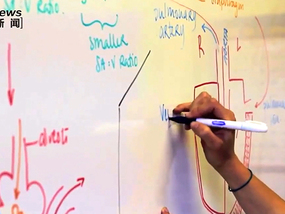 news
新闻
SA:V Ratio
smaller
SA:V Ratio
alveoli
pulmonary
artery
R
L
Ve